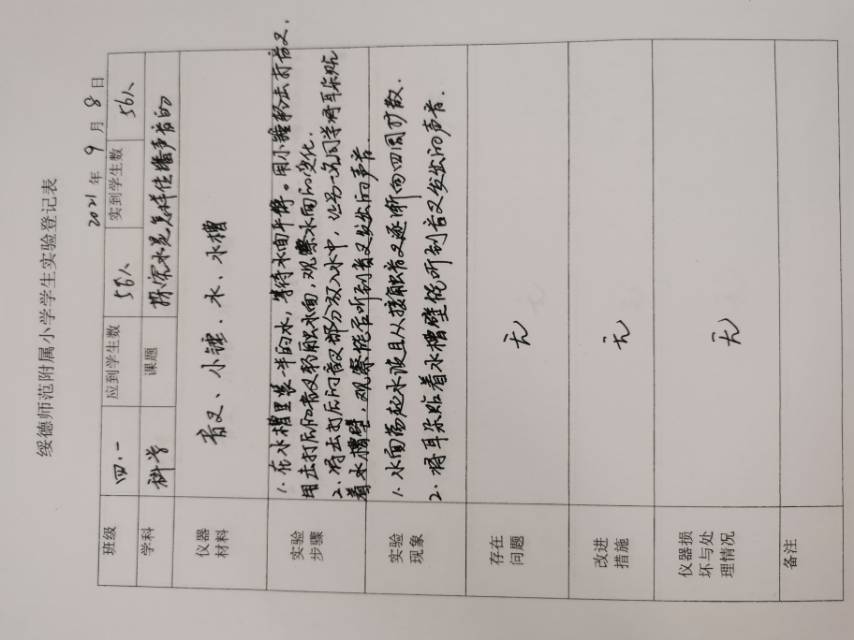 绥德师范附属小学学生实验登记表
2021 年 9 月 8 日
班级 四.一 应到学生数 56人 实到学生数 56人
学科 科学 课题 探究水是怎样传播声音的
仪器材料 音叉、小锤、水、水槽
实验步骤
1.在水槽里装一半的水,等待水面平静。用小锤轻击打音叉.
用击打后的音叉轻触水面,观察水面的变化.
2.将击打后的音叉部分放入水中,让另一名同学将耳朵贴
着水槽壁,观察能否听到音叉发出的声音.
实验现象
1.水面荡起水波且从接触音叉逐渐向四周扩散.
2.将耳朵贴着水槽壁能听到音叉发出的声音.
存在问题 无
改进措施 无
仪器损坏与处理情况 无
备注